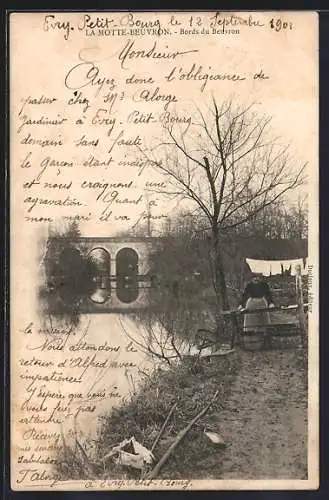 Evry Petit-Bourg le 12 Septembre 1902
LA MOTTE-BEUVRON. - Bords du Beuvron
Monsieur
Ayez donc l'obligeance de
passer chez Mr Aloige
Jardinier à Evry-Petit Bourg
demain sans faute
le garçon étant indispo
et nous craignons une
agravation. Quant à
mon mari il va pour
la main
Nous attendons le
retour d'Alfred avec
impatience
J'espère que vous ne
vous ferez pas
attendre
Recevez
mes sincères
Salutations
à Evry. Petit-Bourg